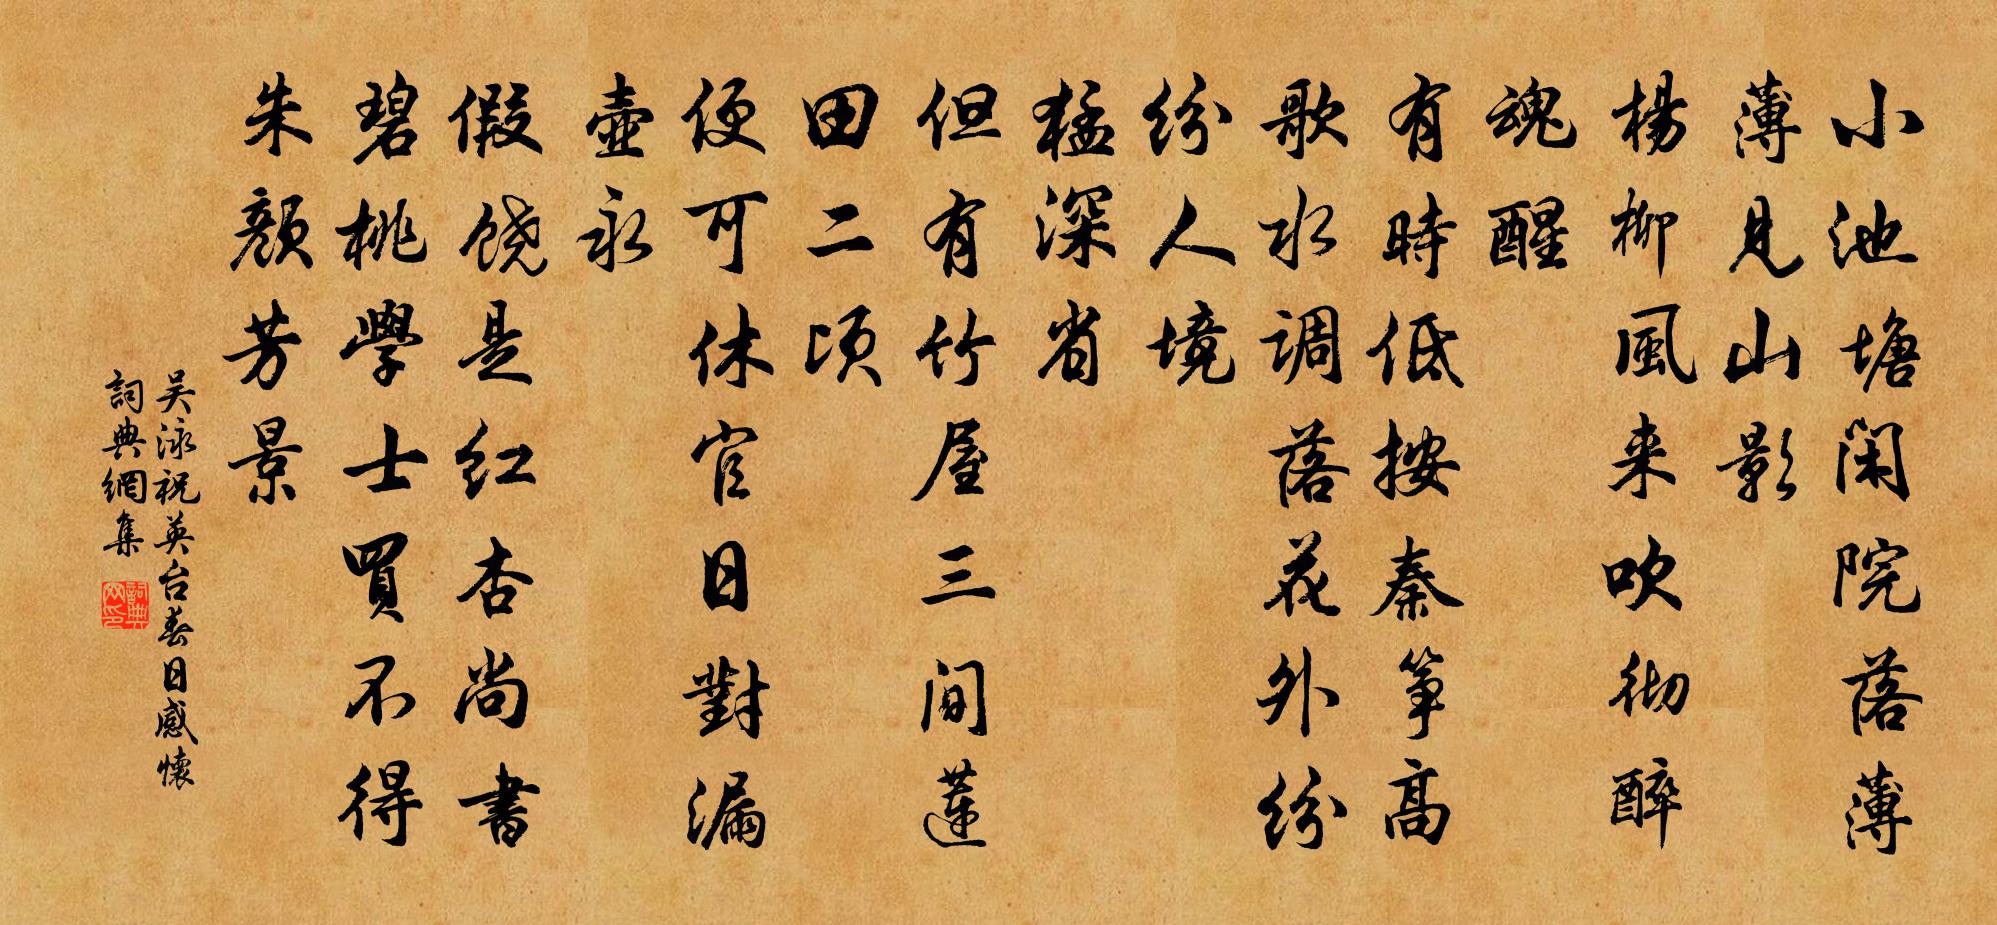 小池塘閑院落薄
薄見山影
楊柳風来吹彻醉
魂醒
有時低按秦筝高
歌水調落花外纷
纷人境
猛深省
但有竹屋三间蓮
田二頃
便可休官日對漏
壺永
假饒是红杏尚書
碧桃學士買不得
朱顔芳景
吴泳祝英台春日感懷
詞典網集
詞典
网印